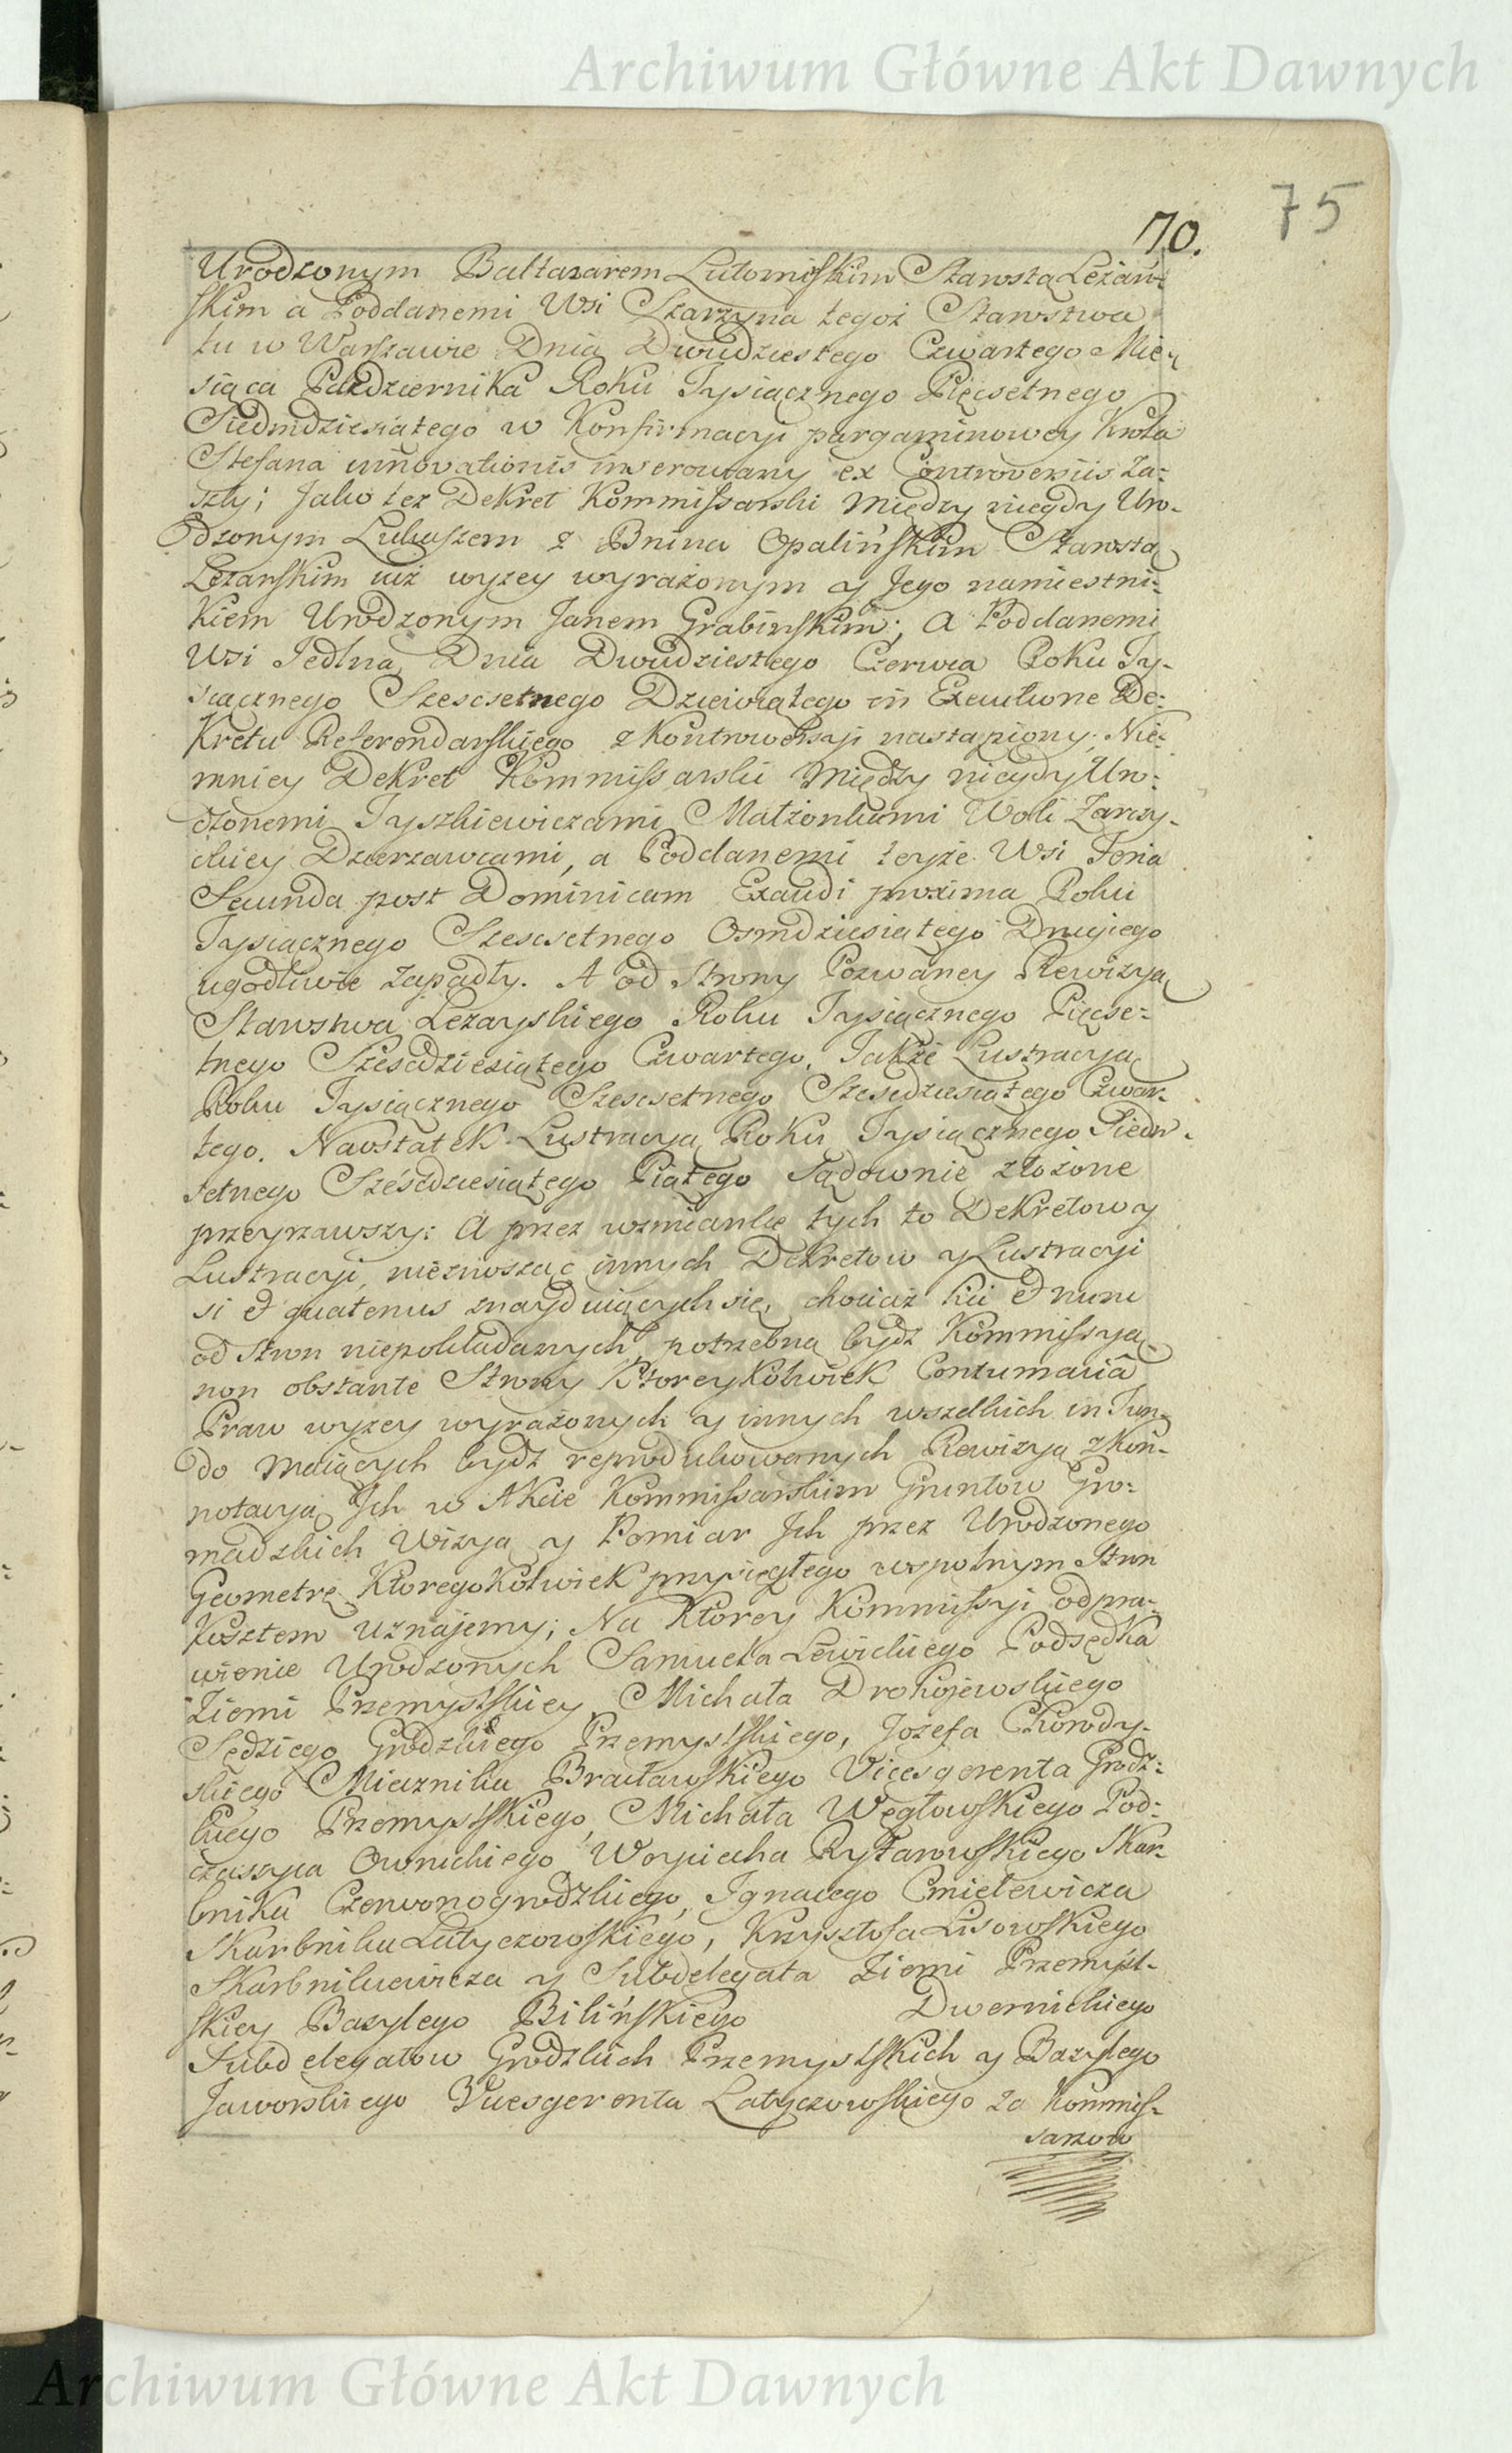 Archiwum Główne Akt Dawnych
75
70.
Urodzonym Baltazarem Lutomiskim Starostą Leżań-
skim a Poddanemi Wsi Szarzyna tegoż Starostwa
tu w Warszawie Dnia Dwudziestego Czwartego Mie-
siąca Pazdziernika Roku Tysiącznego Pięcsetnego
Siedmdziesiątego w Konfirmacyi pargaminowey Krola
Stefana innovationis inserowany ex Controversiis Za-
szły; Jako też Dekret Kommissarski między niegdy Uro-
dzonym Lukaszem z Bnina Opalińskim Starostą
Leżanskim już wyżey wyrażonym y Jego namiestni-
kiem Urodzonym Janem Grabinskim; a Poddanemi
Wsi Jedlna Dnia Dwudziestego Czerwca Roku Ty-
siącznego Szescsetnego Dziewiątego in Executione De-
kretu Referendarskiego z Kontrowersyi nastąpiony; Nie-
mniey Dekret Kommissarski między niegdy Uro-
dzonemi Tyszkiewiczami Małżonkami Woli Zarczy-
ckiey Dzierzawcami, a Poddanemi teyże Wsi Feria
Secunda post Dominicam Exaudi proxima Roku
Tysiącznego Szescsetnego Osmdziesiątego Drugiego
ugodliwie zapadły. A od Strony Pozwaney Rewizya
Starostwa Leżayskiego Roku Tysiącznego Pięcse-
tnego Szescdziesiątego Czwartego, Także Lustracya
Roku Tysiącznego Szescsetnego Szescdziesiątego Czwar-
tego. Naostatek Lustracya Roku Tysiącznego Siedm-
setnego Sześcdziesiątego Piątego Sądownie złożone
przeyrzawszy: A przez wzmiankę tych to Dekretow y
Lustracyi, nieznosząc innych Dekretow y Lustracyi
si & quatenus znayduiących się, chociaż hic & nunc
od Stron niepokładanych, potrzebną bydź Kommissyą
non obstante Strony Ktoreykolwiek Contumacia
Praw wyżey wyrażonych y innych wszelkich in Fun-
do maiących bydź reprodukowanych Rewizyą z Kon-
notacyą Ich w Akcie Kommissarskim Gruntow Gro-
madzkich Wizyą y Pomiar Ich przez Urodzonego
Geometrę Ktoregokolwiek przysięgłego wspolnym Stron
Kosztem uznajemy; Na Ktorey Kommissyi odpra-
wienie Urodzonych Samuela Lewickiego Podsędka
Ziemi Przemyslskiey, Michała Drohojewskiego
Sędziego Grodzkiego Przemyslskiego, Jozefa Chorody-
skiego Miecznika Bracławskiego Vicesgerenta Grodz-
kiego Przemyslskiego, Michała Węgłowskiego Pod-
czaszyca Owruckiego Woyciecha Rylarowskiego Skar-
bnika Czerwonogrodzkiego, Ignacego Cmielewicza
Skarbnika Latyczowskiego, Krzysztofa Lisowskiego
Skarbnikiewicza y Subdelegata Ziemi Przemysl-
skiey Bazylego Bilińskiego Dwernickiego
Subdelegatow Grodzkich Przemyslskich y Bazylego
Jaworskiego Vicesgerenta Latyczowskiego za Kommis-
sarzow
Archiwum Główne Akt Dawnych